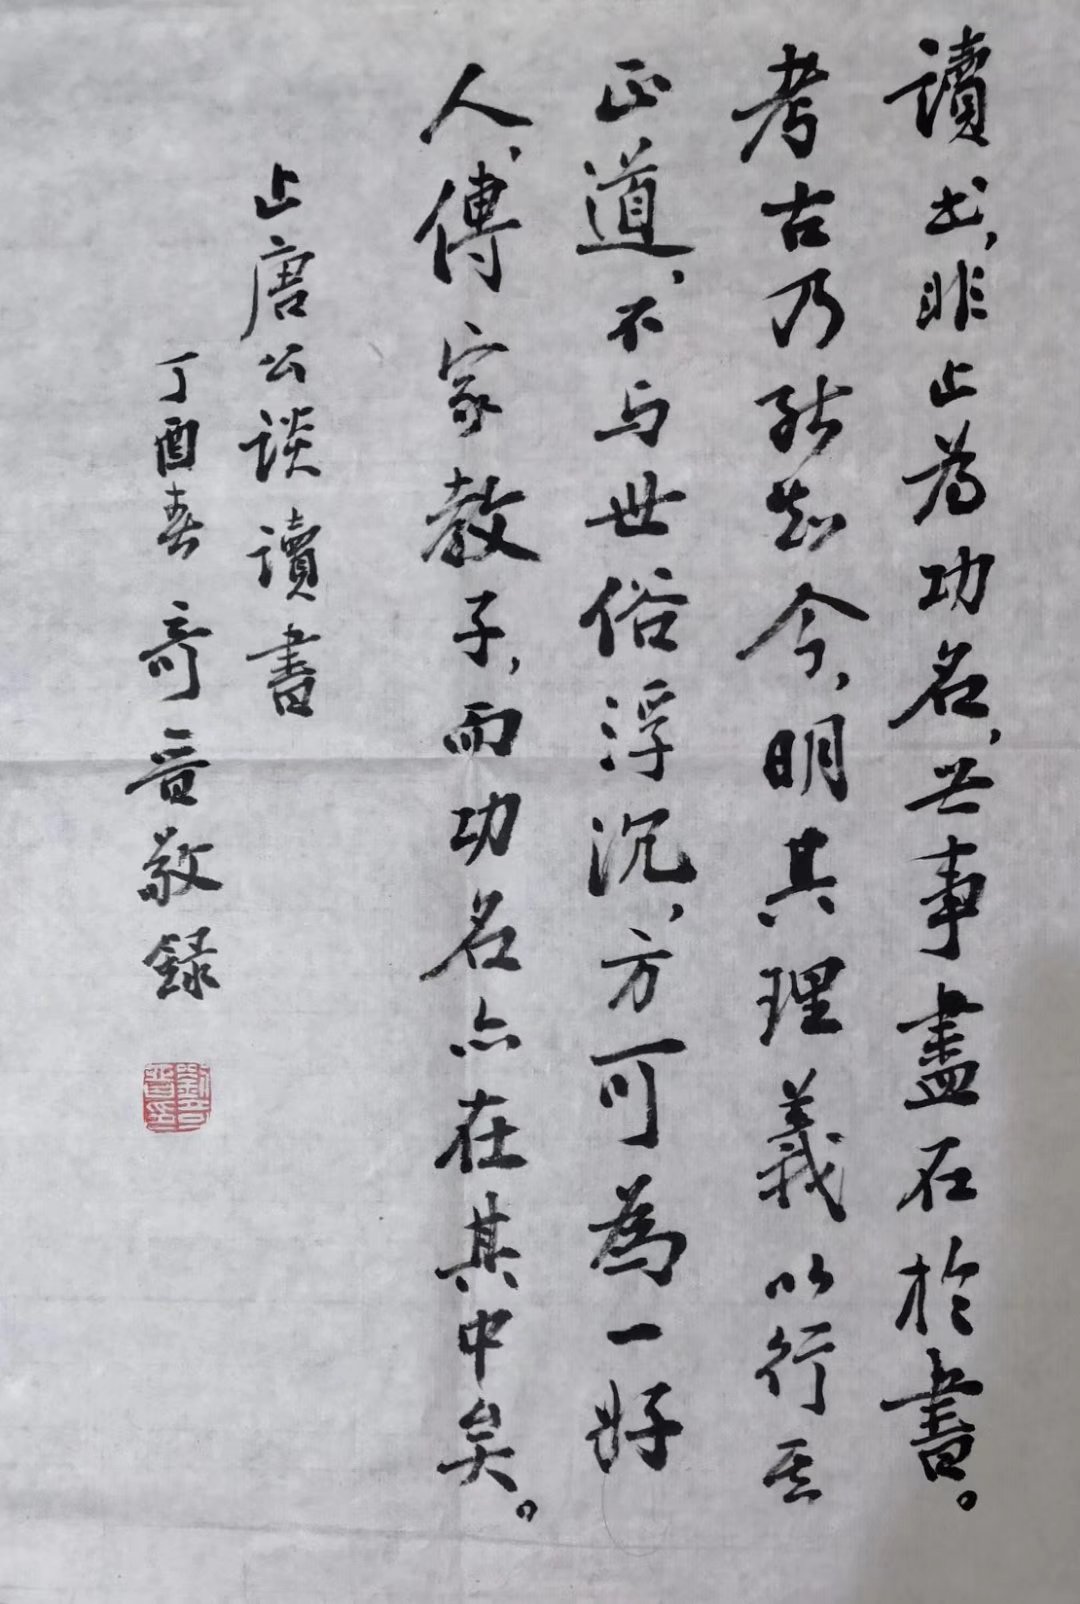 讀书，非止為功名，世事盡在於書。
考古乃能知今，明其理義以行其
正道，不与世俗浮沉，方可為一好
人，傳家教子，而功名亦在其中矣。
止唐公談讀書
丁酉春 奇晋敬録